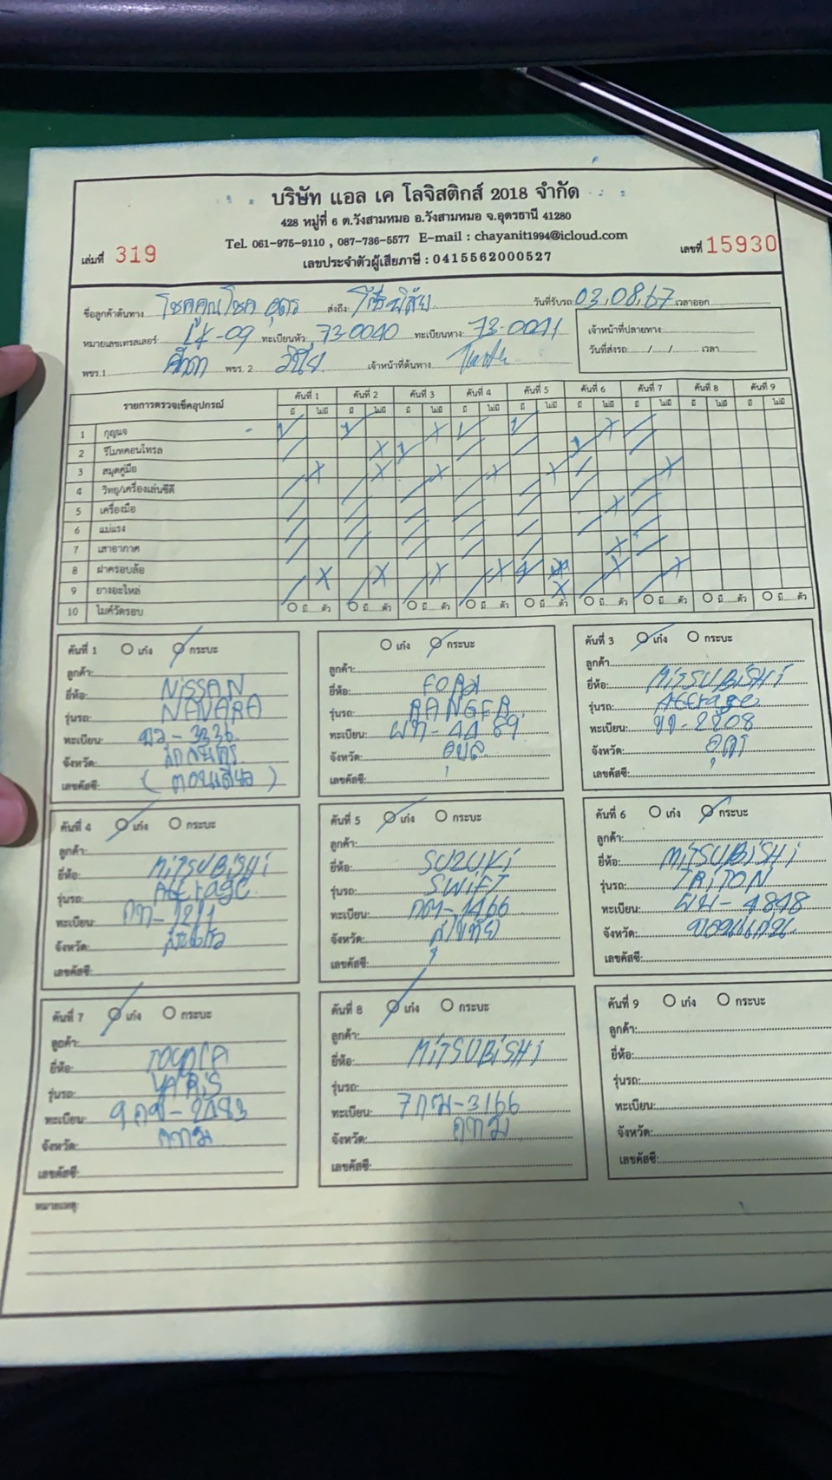 บริษัท แอล เค โลจิสติกส์ 2018 จำกัด
428 หมู่ที่ 6 ต.วังสามหมอ อ.วังสามหมอ จ.อุดรธานี 41280
Tel. 061-975-9110 , 087-736-5577 E-mail : chayanit1994@icloud.com
เล่มที่ 319 เลขประจำตัวผู้เสียภาษี : 0415562000527 เลขที่ 15930
ชื่อลูกค้าต้นทาง โชคคูณโชค อุดร ส่งถึง วันที่รับรถ 03,08,67 เวลาออก
หมายเลขเทรลเลอร์ LK-09 ทะเบียนหัว 73-0040 ทะเบียนหาง 73-0041 เจ้าหน้าที่ปลายทาง
พขร.1 พขร. 2 เจ้าหน้าที่ต้นทาง วันที่ส่งรถ / / เวลา
รายการตรวจเช็คอุปกรณ์ คันที่ 1 คันที่ 2 คันที่ 3 คันที่ 4 คันที่ 5 คันที่ 6 คันที่ 7 คันที่ 8 คันที่ 9
มี ไม่มี มี ไม่มี มี ไม่มี มี ไม่มี มี ไม่มี มี ไม่มี มี ไม่มี มี ไม่มี มี ไม่มี
1 กุญแจ
2 รีโมทคอนโทรล
3 สมุดคู่มือ
4 วิทยุ/เครื่องเล่นซีดี
5 เครื่องมือ
6 แม่แรง
7 เสาอากาศ
8 ฝาครอบล้อ
9 ยางอะไหล่
10 ไมค์วัดรอบ มี ตัว มี ตัว มี ตัว มี ตัว มี ตัว มี ตัว มี ตัว มี ตัว มี ตัว
คันที่ 1 เก๋ง กระบะ
ลูกค้า:
ยี่ห้อ: NISSAN
รุ่นรถ: NAVARA
ทะเบียน: -3236
จังหวัด: สกลนคร
เลขคัสซี: (ตอนเดียว)
เก๋ง กระบะ
ลูกค้า:
ยี่ห้อ: FORd
รุ่นรถ: RANGER
ทะเบียน:
จังหวัด: อุบล
เลขคัสซี:
คันที่ 3 เก๋ง กระบะ
ลูกค้า
ยี่ห้อ: MITSUBISHI
รุ่นรถ: Attrage
ทะเบียน: -2208
จังหวัด: อุดร
เลขคัสซี:
คันที่ 4 เก๋ง กระบะ
ลูกค้า:
ยี่ห้อ: MITSUBISHI
รุ่นรถ: Attrage
ทะเบียน: -1211
จังหวัด:
เลขคัสซี:
คันที่ 5 เก๋ง กระบะ
ลูกค้า:
ยี่ห้อ: SUZUKI
รุ่นรถ: SWIFT
ทะเบียน: -1466
จังหวัด: สุโขทัย
เลขคัสซี:
คันที่ 6 เก๋ง กระบะ
ลูกค้า:
ยี่ห้อ: MITSUBISHI
รุ่นรถ: TRITON
ทะเบียน: ผม-4848
จังหวัด: ขอนแก่น
เลขคัสซี:
คันที่ 7 เก๋ง กระบะ
ลูกค้า:
ยี่ห้อ: TOYOTA
รุ่นรถ: YARIS
ทะเบียน:
จังหวัด: กทม
เลขคัสซี:
คันที่ 8 เก๋ง กระบะ
ลูกค้า:
ยี่ห้อ: MITSUBISHI
รุ่นรถ:
ทะเบียน: 7กฒ-3166
จังหวัด: กทม
เลขคัสซี:
คันที่ 9 เก๋ง กระบะ
ลูกค้า:
ยี่ห้อ:
รุ่นรถ:
ทะเบียน:
จังหวัด:
เลขคัสซี:
หมายเหตุ